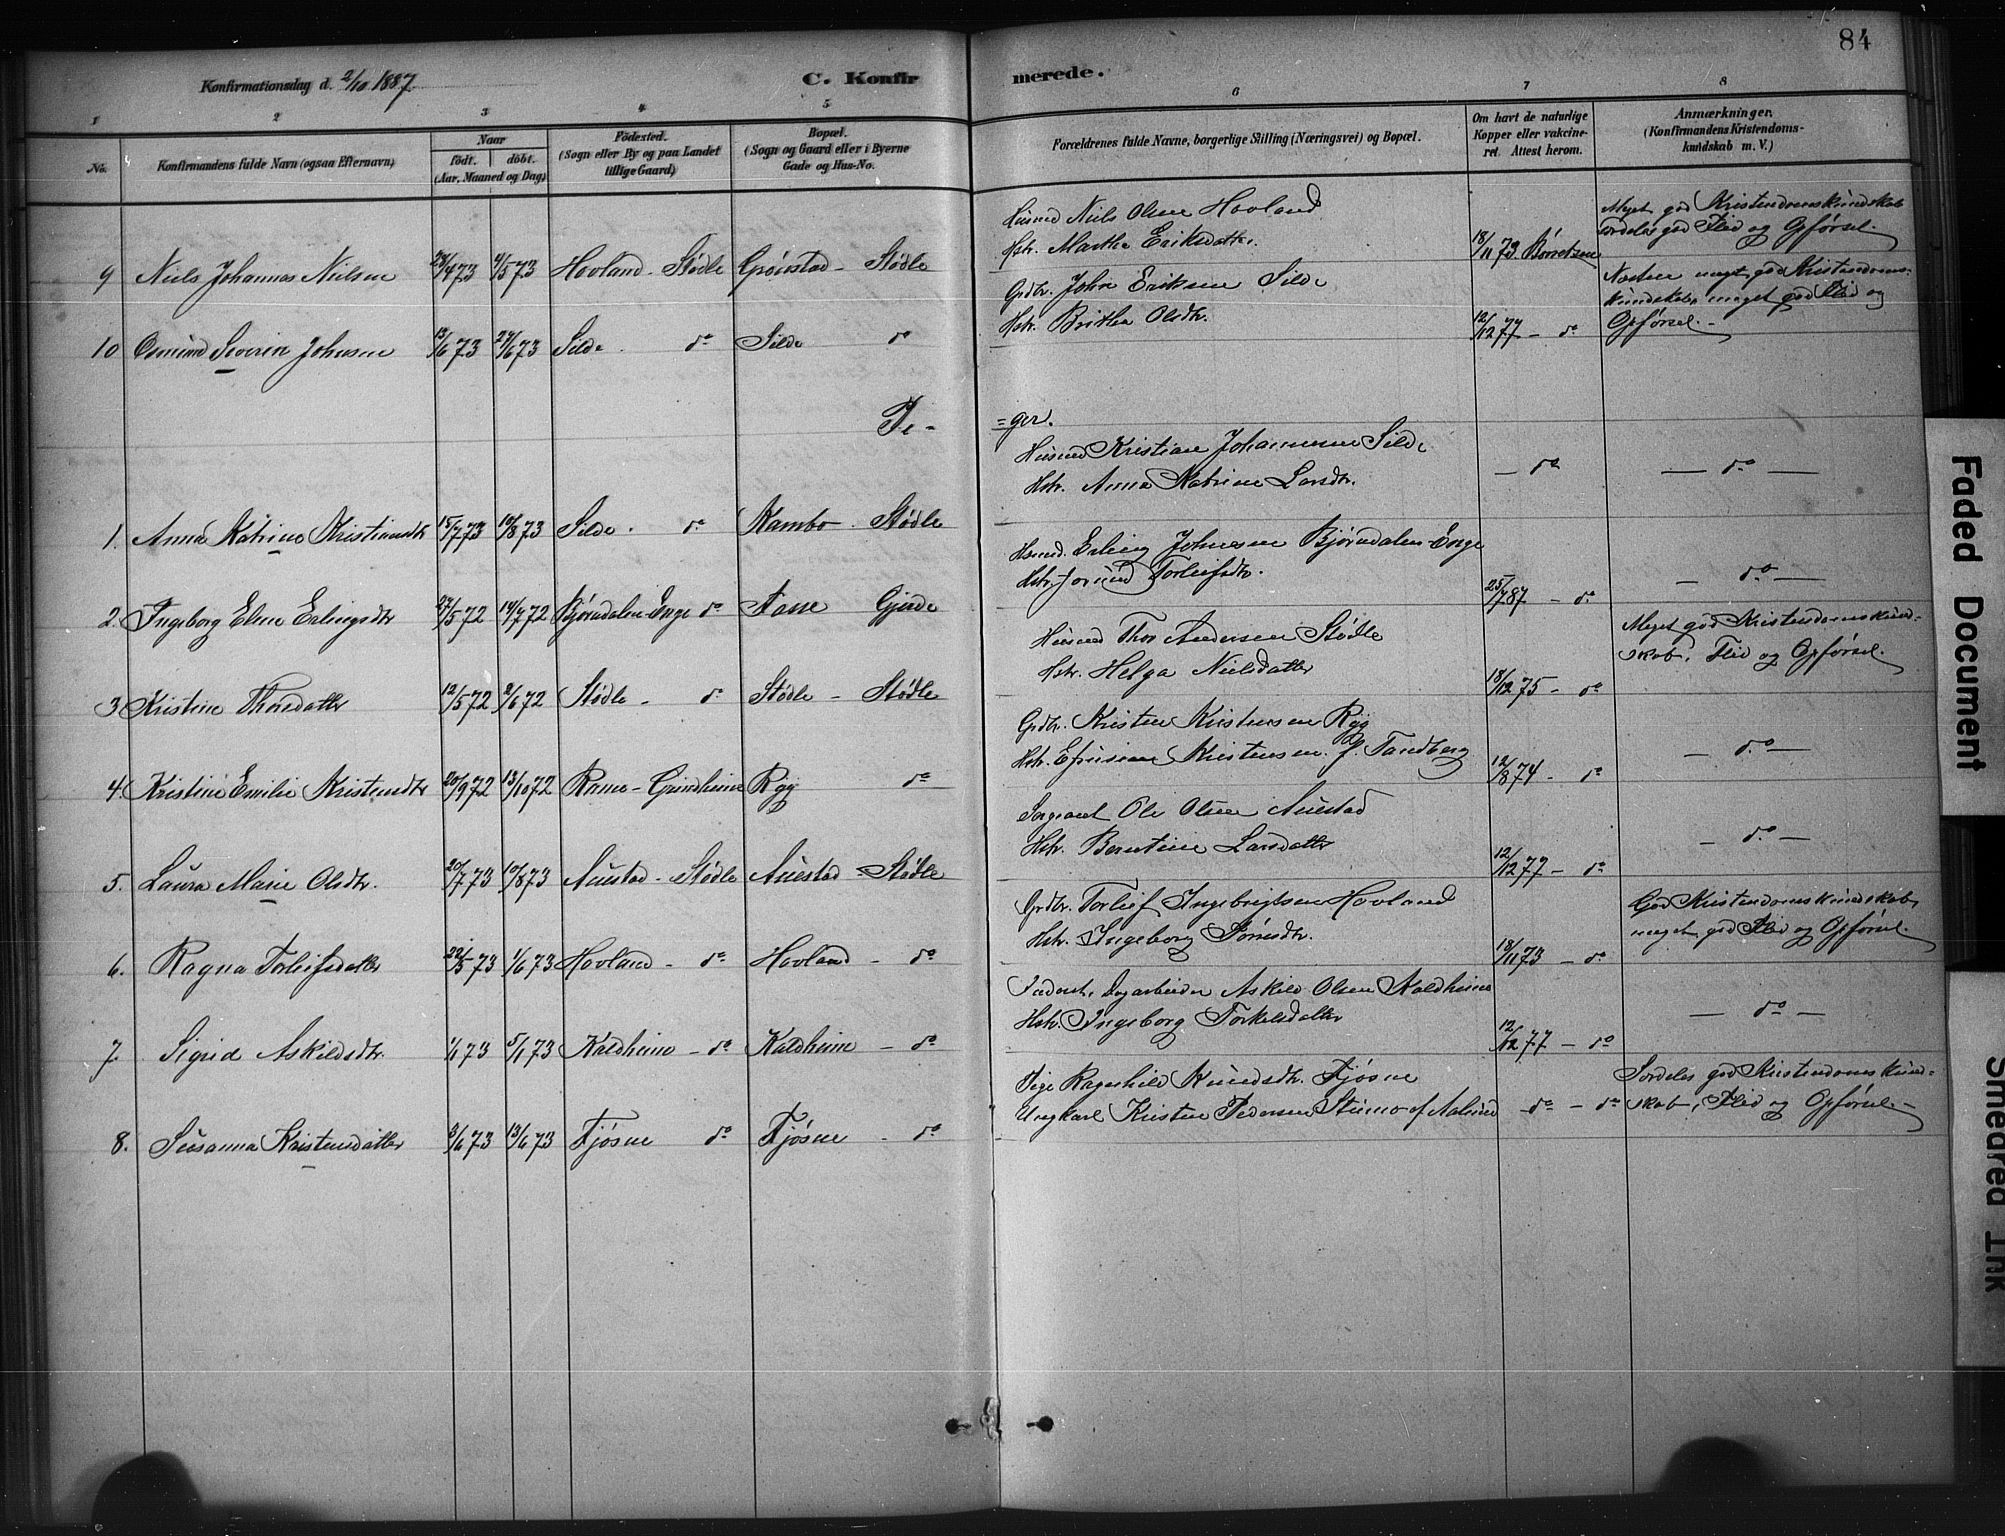 84
Konfirmationsdag d. 2/10 1887.
C. Konfirmerede.
1 2 3 4 5 6 7 8
No.
Konfirmandens fulde Navn (ogsaa Efternavn)
Naar
födt. döbt.
(Aar, Maaned og Dag)
Födested.
(Sogn eller By og paa Landet
tillige Gaard)
Bopæl.
(Sogn og Gaard eller i Byerne
Gade og Hus-No.
Forældrenes fulde Navne, borgerlige Stilling (Næringsvei) og Bopæl.
Om havt de naturlige
Kopper eller vakcine-
ret. Attest herom.
Anmærkninger.
(Konfirmandens Kristendoms-
kundskab m. V.)
9 Niels Johannes Nielsen 4/5 73 Hovland - Stødle Grønstad - Stødle
Husmd Niels Olsen Hovland
Hstr. Marthe Eriksdatter.
18/11 73 Børretzen
Meget god Kristendomskundskab
særdeles god Flid og Opførsel.
10 Osmund Severin Johnsen 13/6 73 29/6 73 Silde - do Silde do
Grdbr. John Eriksen Silde
Hstr. Britha Olsdtr.
12/12 77 - do
Næsten meget god Kristendoms-
kundskab, meget god Flid og
Opførsel. -
Pi-
=ger.
1. Anna Katrine Kristiansdtr 15/7 73 10/8 73 Silde - do Kambo - Stødle
Husmd Kristian Johannesen Silde
Hstr. Anna Katrine Larsdtr.
- do
- do -
2. Ingeborg Elene Erlingsdtr 27/5 72 14/7 72 Bjørndalen-Enge do Aasse Gjerde
Husmd. Erling Johnsen Bjørndalen-Enge
Hstr. Jorund Torleifsdtr.
25/7 87 - do
- do -
3 Kristine Thorsdatter 12/5 72 2/6 72 Stødle - do Stødle - Stødle
Husmd Thor Andersen Stødle
Hstr. Helga Nielsdatter
18/12 75 - do
Meget god Kristendomskund-
skab, Flid og Opførsel.
4. Kristine Emilie Kristensdtr 20/9 72 13/10 72 Ramo - Grindheim Ryg do
Grdbr. Kristen Kristensen Ryg
Hstr. Efrusine Kristensen f. Tandberg
12/8 74 - do
- do -
5. Laura Marie Olsdtr. 20/7 73 10/8 73 Auestad - Stødle Auestad - Stødle
Sergeant Ole Olsen Auestad
Hstr. Berntine Larsdatter
12/12 77 - do
- do -
6. Ragna Torleifsdatter 22/5 73 1/6 73 Hovland - do Hovland - do
Grdbr. Torleif Ingebrigtsen Hovland
Hstr. Ingeborg Sørensdtr.
18/11 73 - do
God Kristendomskundskab,
meget god Flid og Opførsel.
7. Sigrid Askildsdtr. 1/1 73 5/1 73 Kaldheim - do Kaldheim - do
Inderst, Dagarbeider Askild Olsen Kaldheim
Hstr. Ingeborg Torkelsdatter
12/12 77 - do
- do -
8. Susanna Kristensdatter 3/6 73 13/6 73 Fjøsne do Fjøsne - do
Pige Ragnhild Knudsdtr. Fjøsne
Ungkarl Kristen Pedersen Stumo af Aalund
- do - do
Særdeles god Kristendomskund-
skab, Flid og Opførsel. -
Faded Document
Smeared Ink